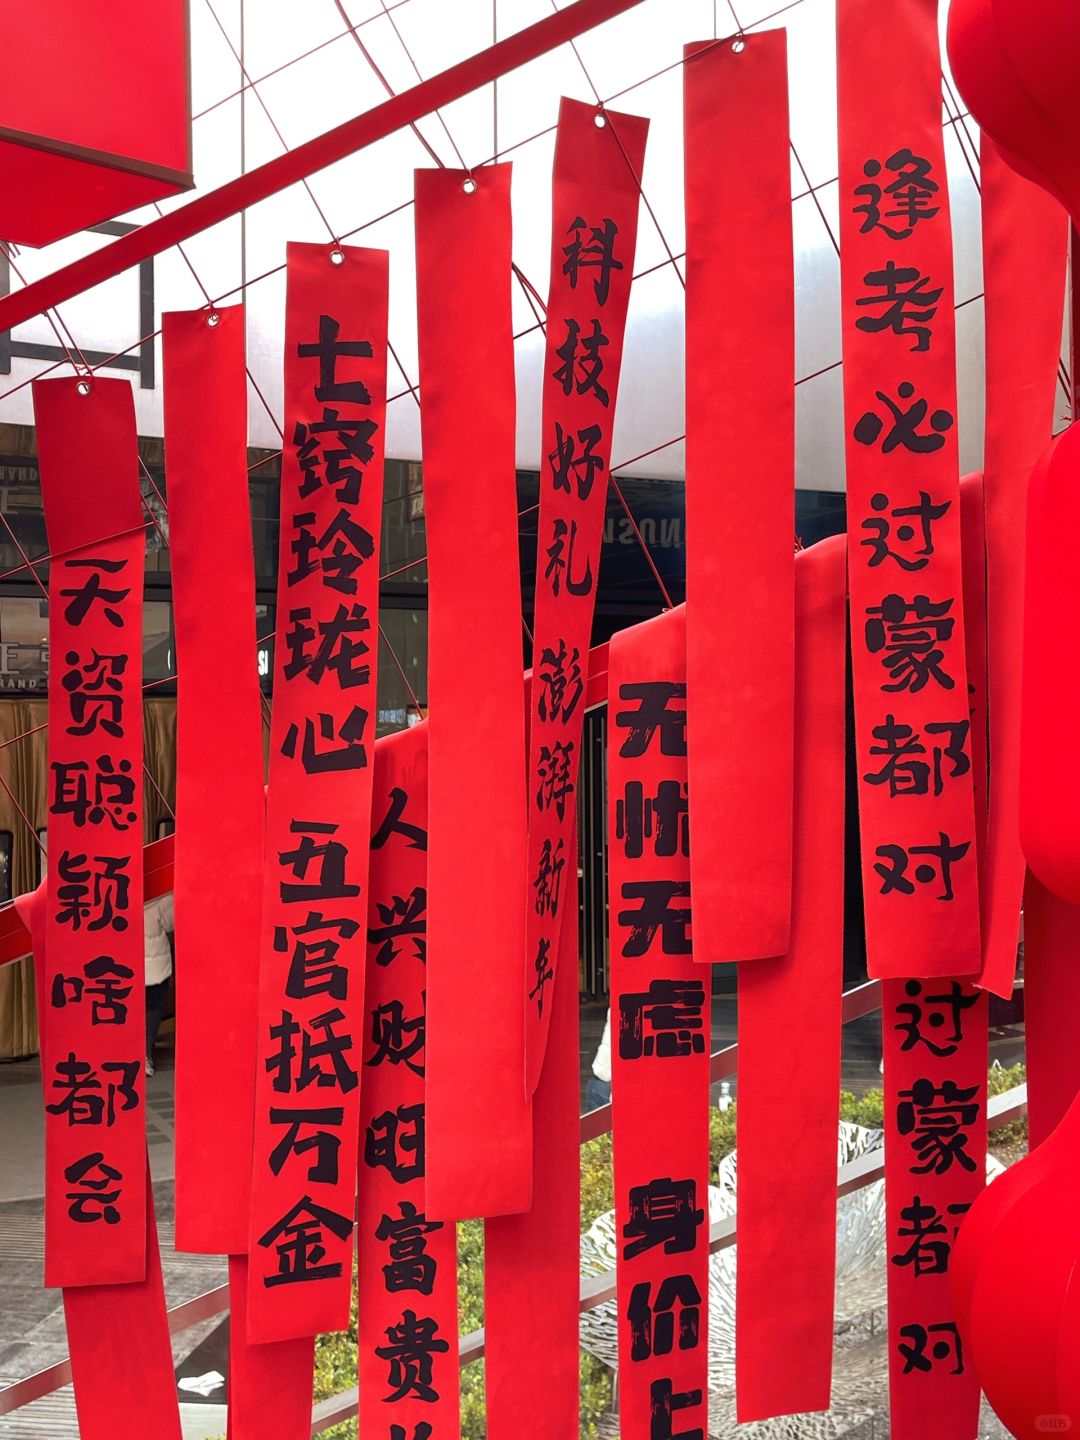 天资聪颖啥都会
七窍玲珑心 五官抵万金
人兴财旺富贵
科技好礼 澎湃新年
无忧无虑 身价上
逢考必过蒙都对
过蒙都对
小红书